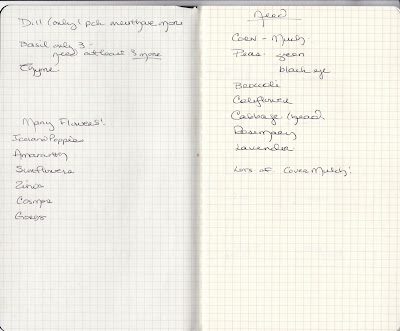 Dill (only 1 pck need more
Basil only 3 -
need at least 3 more
Thyme
Many Flowers!
Iceland Poppies
Amaranth
Sunflowers
Zinia
Cosmos
Need
Corn - Much
Peas - green
black eye
Broccoli
Califlower
Cabbage (head)
Rosemary
Lavender
Lots of Cover Mulch!